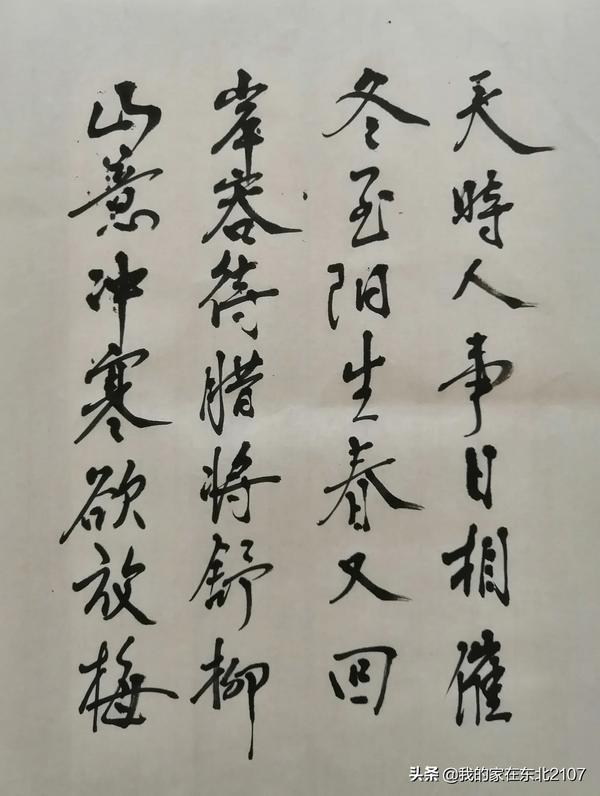 天時人事日相催
冬至阳生春又回
岸容待腊将舒柳
山意冲寒欲放梅
头条 @我的家在东北2107